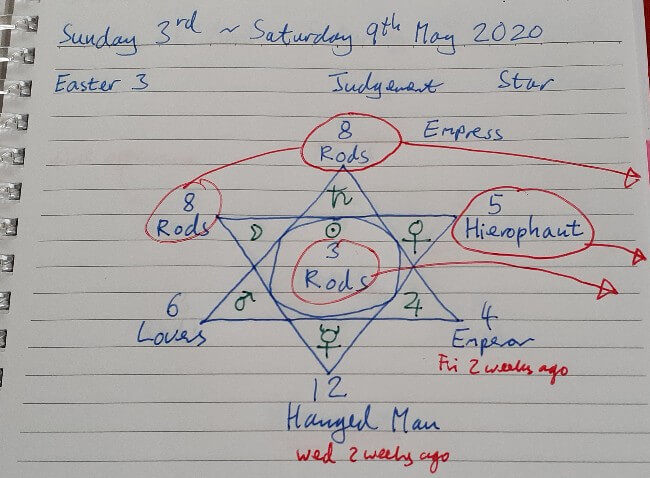 Sunday 3rd ~ Saturday 9th May 2020
Easter 3 Judgement Star
8
Rods
Empress
8
Rods
♄
5
Hierophant
☽ ☉ ♀
3
Rods
6
Lovers
♂ ♃
4
Emperor
☿
Fri 2 weeks ago
12
Hanged Man
Wed 2 weeks ago